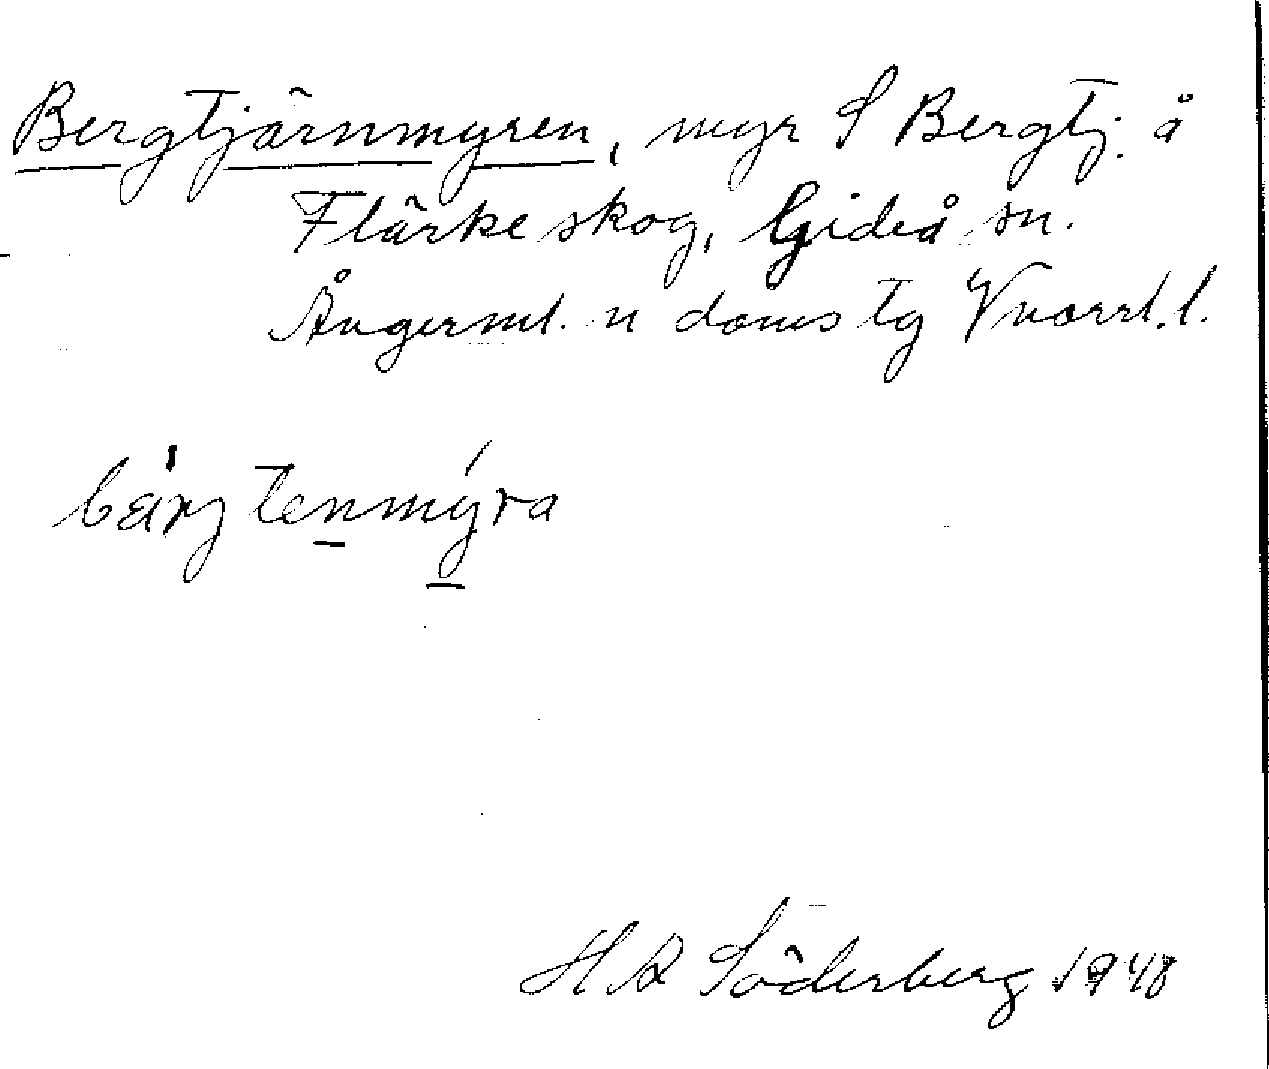 Bergtjärnmyren, myr S Bergtj. å
Flärke skog, Gideå sn.
Ångerml. n doms tg Vnorrl. l.
bärjtenmýra
H R Söderberg 1948